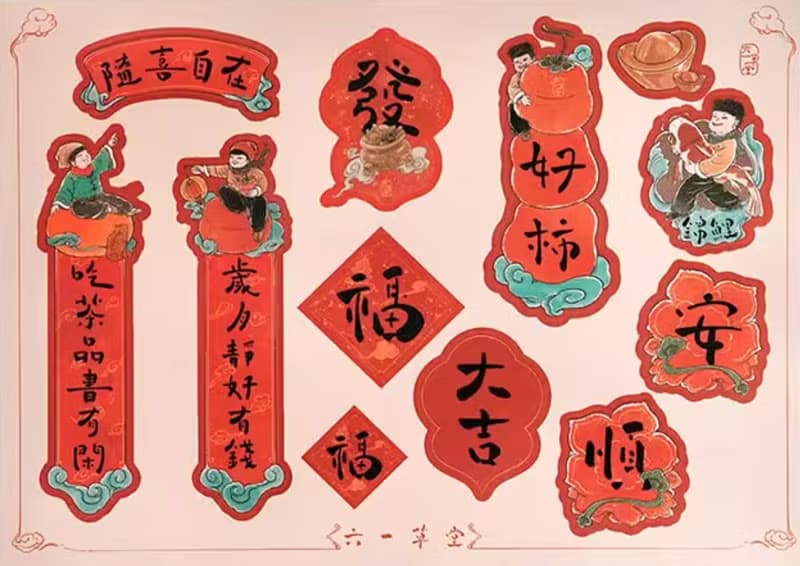 隨喜自在
吃茶品書有閑
歲月靜好有錢
發
福
福
大吉
好柿
錦鯉
安
順
六一草堂